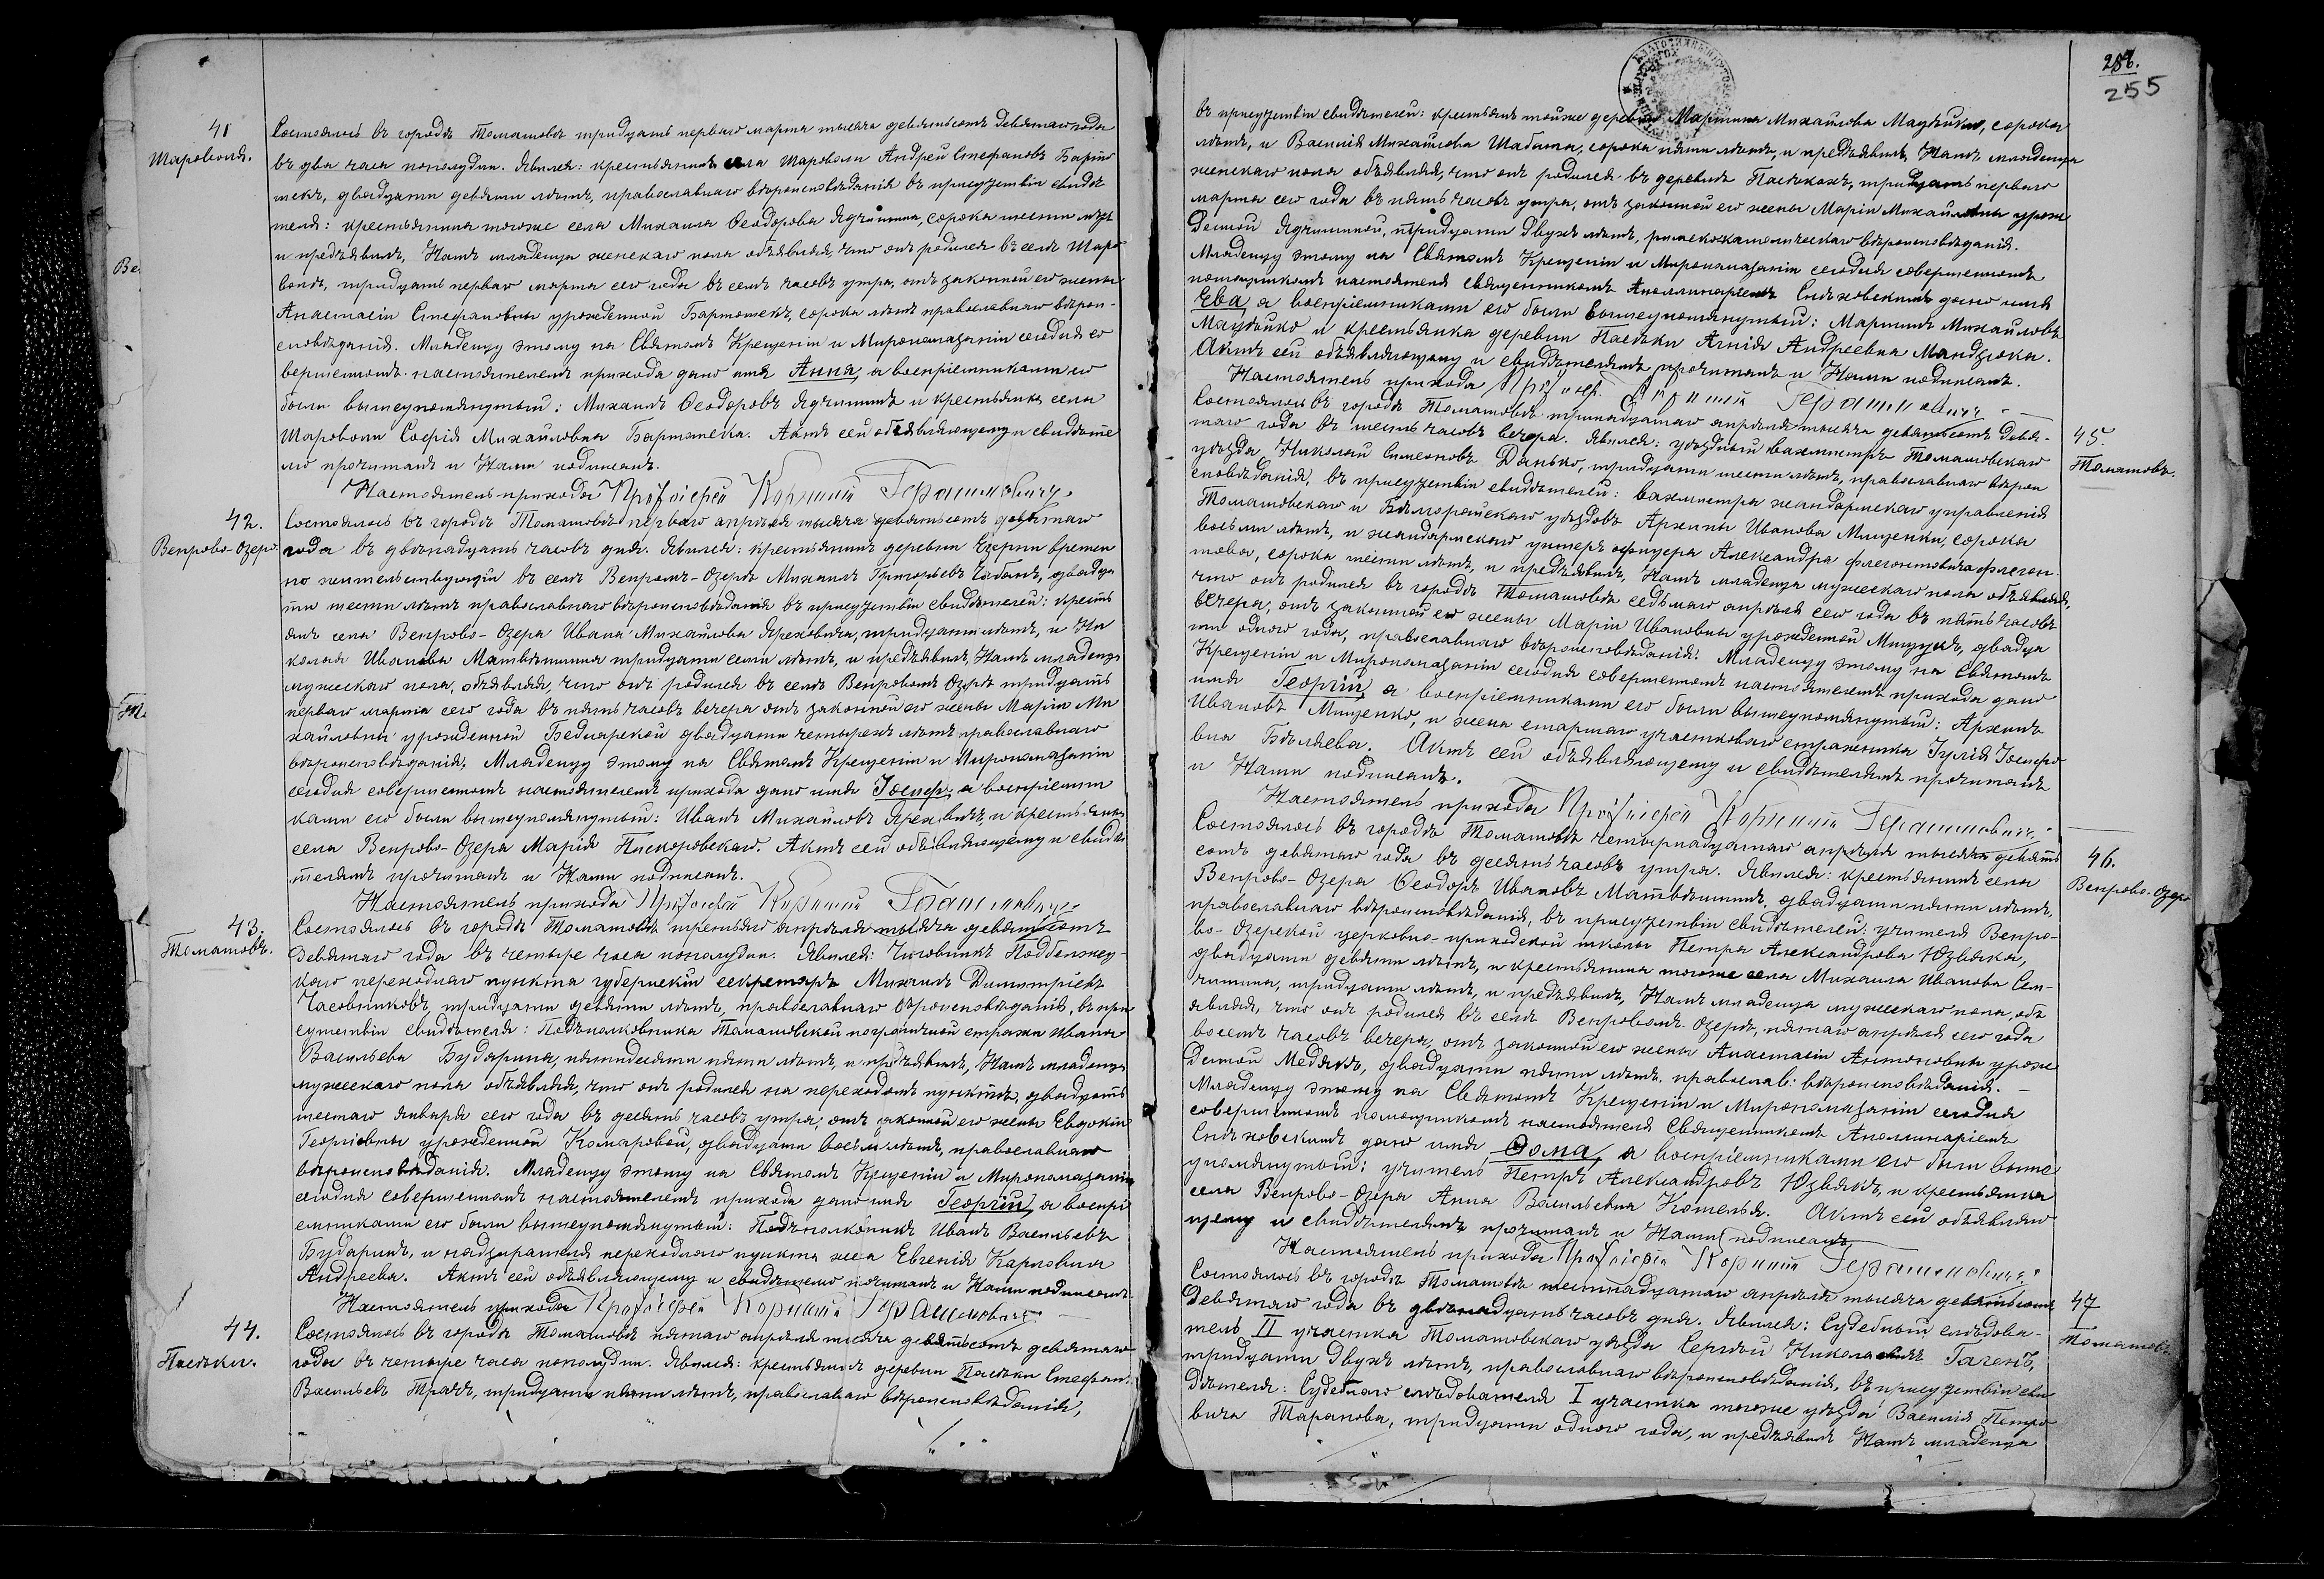 41
Шаровола.
Состоялось въ городѣ Томашовѣ тридцать перваго марта тысяча девятьсотъ девятаго года
въ два часа пополудни. Явился: крестьянинъ села Шароволи Андрей Стефановъ Барто
шекъ, двадцати девяти лѣтъ, православнаго вѣроисповѣданія въ присутствіи свидѣ
теля: крестьянина тогоже села Михаила Ѳеодорова Ядчишина, сорока шести лѣтъ
и предъявилъ, Намъ младенца женскаго пола объявляя, что онъ родился въ селѣ Шаро
волѣ, тридцать перваго марта сего года въ семь часовъ утра, отъ законной его жены
Анастасіи Стефановны урожденной Бартошекъ, сорока лѣтъ православнаго вѣрои-
сповѣданія. Младенцу этому на Святомъ Крещеніи и Миропомазаніи сегодня со
вершенномъ настоятелемъ прихода дано имя Анна, а воспріемниками его
были вышеупомянутый: Михаилъ Ѳеодоровъ Ядчишинъ и крестьянка села
Шароволи Софія Михайловна Бартошека. Актъ сей объявляющему и свидѣте
лю прочитанъ и Нами подписанъ.
Настоятель прихода Протоіерей Корнилій Герашимовичъ.
42.
Вепрово-Озеро.
Состоялось въ городѣ Томашовѣ перваго апрѣля тысяча девятьсотъ девятаго
года въ двѣнадцать часовъ дня. Явился: крестьянинъ деревни Езерни времен
но жительствующій въ селѣ Вепровѣ-Озерѣ Михаилъ Григорьевъ Чабанъ, двадца
ти шести лѣтъ православнаго вѣроисповѣданія въ присутствіи свидѣтелей: крестья
янъ села Вепрово-Озера Ивана Михайлова Яреховича, тридцати лѣтъ, и Ни
колая Иванова Матвѣишина тридцати семи лѣтъ, и предъявилъ Намъ младенца
мужескаго пола, объявляя, что онъ родился въ селѣ Вепровомъ Озерѣ тридцать
перваго марта сего года въ пять часовъ вечера отъ законной его жены Маріи Ми
хайловны урожденной Беднарской двадцати четырехъ лѣтъ православнаго
вѣроисповѣданія, Младенцу этому на Святомъ Крещеніи и Миропомазаніи
сегодня совершенномъ настоятелемъ прихода дано имя Іосифъ, а воспріемни
ками его были вышеупомянутый: Иванъ Михайловъ Яреховичъ и крестьянка
села Вепрово-Озера Марія Пискоровская. Актъ сей объявляющему и свидѣ
телямъ прочитанъ и Нами подписанъ.
Настоятель прихода Протоіерей Корнилій Герашимовичъ
43.
Томашовъ.
Состоялось въ городѣ Томашовѣ третьяго апрѣля тысяча девятьсотъ
девятаго года въ четыре часа пополудни. Явился: Чиновникъ Подбелжец-
каго переходнаго пункта губернскій секретарь Михаилъ Димитріевъ
Часовниковъ, тридцати девяти лѣтъ, православнаго вѣроисповѣданія, въ при
сутствіи свидѣтеля: Подполковника Томашовской пограничной стражи Ивана
Васильева Бударина, пятидесяти пяти лѣтъ, и предъявилъ, Намъ младенца
мужескаго пола объявляя, что онъ родился на переходномъ пунктѣ, двадцать
шестаго января сего года въ десять часовъ утра, отъ законной его жены Евдокіи
Георгіевны урожденной Комаровой, двадцати восьми лѣтъ, православнаго
вѣроисповѣданія. Младенцу этому на Святомъ Крещеніи и Миропомазаніи
сегодня совершенномъ настоятелемъ прихода дано имя Георгій, а воспрі
емниками его были вышеупомянутый: Подполковникъ Иванъ Васильевъ
Бударинъ, и надзирателя переходнаго пункта жена Евгенія Карповна
Андреева. Актъ сей объявляющему и свидѣтелю прочитанъ и Нами подписанъ.
Настоятель прихода Протоіерей Корнилій Герашимовичъ
44.
Пасѣки.
Состоялось въ городѣ Томашовѣ пятаго апрѣля тысяча девятьсотъ девятаго
года въ четыре часа пополудни. Явился: крестьянинъ деревни Пасѣки Стефанъ
Васильевъ Трачъ, тридцати пяти лѣтъ, православнаго вѣроисповѣданія,
255
въ присутствіи свидѣтелей: крестьянъ тойже деревни Мартина Михайлова Мацѣйко, сорока
лѣтъ, и Василія Михайлова Шабата, сорока пяти лѣтъ, и предъявилъ, Намъ младенца
женскаго пола объявляя, что онъ родился въ деревнѣ Пасѣкахъ, тридцать перваго
марта сего года въ пять часовъ утра, отъ законной его жены Маріи Михайловны урож
денной Ядчишиной, тридцати двухъ лѣтъ, римскокатолическаго вѣроисповѣданія.
Младенцу этому на Святомъ Крещеніи и Миропомазаніи сегодня совершенномъ
помощникомъ настоятеля священникомъ Аполлинаріемъ Снѣховскимъ дано имя
Ева, а воспріемниками его были вышеупомянутый: Мартинъ Михайловъ
Мацѣйко и крестьянка деревни Пасѣки Агнія Андреевна Мандзюка.
Актъ сей объявляющему и свидѣтелямъ прочитанъ и Нами подписанъ.
Настоятель прихода Протоіер. Корнилій Герашимовичъ
45.
Томашовъ.
Состоялось въ городѣ Томашовѣ тринадцатаго апрѣля тысяча девятьсотъ девя-
таго года въ шесть часовъ вечера. Явился: уѣздный вахмистръ Томашовскаго
уѣзда Николай Симеоновъ Данько, тридцати шести лѣтъ, православнаго вѣрои
сповѣданія, въ присутствіи свидѣтелей: вахмистра жандармскаго управленія
Томашовскаго и Бѣлгорайскаго уѣздовъ Архипа Иванова Мищенки, сорока
восьми лѣтъ, и жандармскаго унтеръ офицера Александра Флегонтовича Флегон
това, сорока шести лѣтъ, и предъявилъ, Намъ младенца мужескаго пола объявляя,
что онъ родился въ городѣ Томашовѣ седьмаго апрѣля сего года въ пять часовъ
вечера, отъ законной его жены Маріи Ивановны урожденной Мищукъ, двадца
ти одного года, православнаго вѣроисповѣданія. Младенцу этому на Святомъ
Крещеніи и Миропомазаніи сегодня совершенномъ настоятелемъ прихода дано
имя Георгій, а воспріемниками его были вышеупомянутый: Архипъ
Ивановъ Мищенко, и жена старшаго участковаго стражника Іулія Іосифо
вна Бѣляева. Актъ сей объявляющему и свидѣтелямъ прочитанъ
и Нами подписанъ.
Настоятель прихода Протоіерей Корнилій Герашимовичъ
46.
Вепрово-Озеро
Состоялось въ городѣ Томашовѣ четырнадцатаго апрѣля тысяча девять
сотъ девятаго года въ десять часовъ утра. Явился: крестьянинъ села
Вепрово-Озера Ѳеодоръ Ивановъ Матвѣишинъ, двадцати пяти лѣтъ,
православнаго вѣроисповѣданія, въ присутствіи свидѣтелей: учителя Вепро-
во-Озерской церковно-приходской школы Петра Александрова Юзвяка,
двадцати девяти лѣтъ, и крестьянина тогоже села Михаила Иванова Сен-
чишина, тридцати лѣтъ, и предъявилъ, Намъ младенца мужескаго пола, объ
являя, что онъ родился въ селѣ Вепровомъ-Озерѣ, пятаго апрѣля сего года
восемь часовъ вечера, отъ законной его жены Анастасіи Антоновны урож
денной Медякъ, двадцати пяти лѣтъ. православ: вѣроисповѣданія.
Младенцу этому на Святомъ Крещеніи и Миропомазаніи сегодня
совершенномъ помощникомъ настоятеля Священникомъ Аполлинаріемъ
Снѣховскимъ дано имя Ѳома, а воспріемниками его были выше
упомянутый: учитель Петръ Александровъ Юзвякъ, и крестьянка
села Вепрово-Озера Анна Васильевна Комельня. Актъ сей объявляю
щему и свидѣтелямъ прочитанъ и Нами подписанъ
Настоятель прихода Протоіерей Корнилій Герашимовичъ
47
Томашовъ
Состоялось въ городѣ Томашовѣ шестнадцатаго апрѣля тысяча девятьсотъ
девятаго года въ двѣнадцать часовъ дня. Явился: Судебный слѣдова-
тель II участка Томашовскаго уѣзда Сергѣй Николаевичъ Гагенъ,
тридцати двухъ лѣтъ, православнаго вѣроисповѣданія, въ присутствіи сви
дѣтеля: Судебнаго слѣдователя I участка тогоже уѣзда Василія Петро
вича Тарапова, тридцати одного года, и предъявилъ Намъ младенца